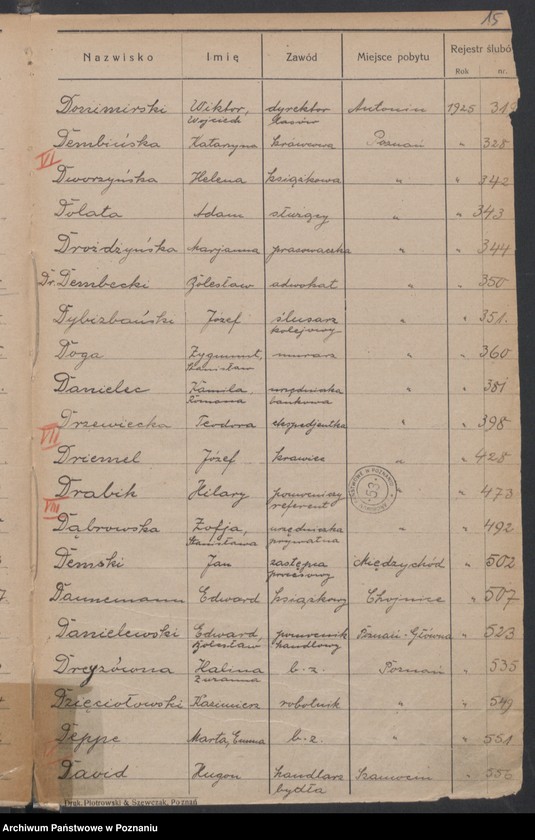 15
Nazwisko Imię Zawód Miejsce pobytu Rejestr ślubów
Rok nr.
Donimirski Wiktor, Wojciech dyrektor lasów Antonin 1925 319
Dembińska Katarzyna krawcowa Poznań " 328
VI
Dworzyńska Helena książkowa " " 342
Dolata Adam służący " " 343
Drożdżyńska Marjanna pracowaczka " " 344
Dr. Dembecki Bolesław adwokat " " 350
Dybizbański Józef ślusarz kolejowy " " 351.
Doga Zygmunt, Stanisław murarz " " 360
Danielec Kamila, Romana urzędniczka bankowa " " 381
Drzewiecka Teodora ekspedjentka " " 398
VII
Driemel Józef krawiec " " 428
Drabik Hilary pomocniczy referent " " 473
VIII
Dąbrowska Zofja, Stanisława urzędniczka prywatna " " 492
Demski Jan zastępca procesowy Międzychód " 502
Dannemann Edward książkowy Chojnice " 507
Danielewski Edward, Bolesław pomocnik handlowy Poznań-Główna " 523
Dreyzówna Halina Zuzanna b. z. Poznań " 535
Dzięciołowski Kazimierz robotnik " " 549
Deppe Marta, Emma b. z. " " 551
David Hugon handlarz bydła Szamocin " 556
Druk. Piotrowski & Szewczak, Poznań
Archiwum Państwowe w Poznaniu